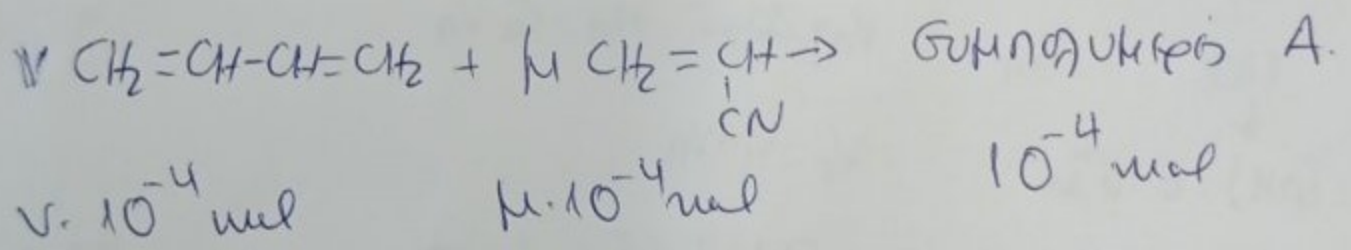 ν CH₂=CH-CH=CH₂ + μ CH₂=CH→ Συμπολυμερές A.
CN
ν. 10⁻⁴ mol μ. 10⁻⁴ mol 10⁻⁴ mol